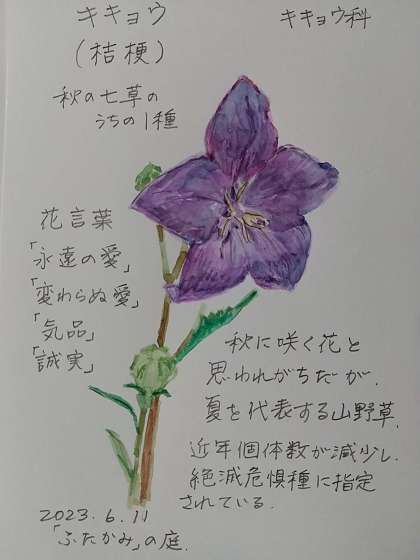 キキョウ
（桔梗）
キキョウ科
秋の七草の
うちの1種
花言葉
「永遠の愛」
「変わらぬ愛」
「気品」
「誠実」
秋に咲く花と
思われがちだが、
夏を代表する山野草。
近年個体数が減少し、
絶滅危惧種に指定
されている。
2023.6.11
「ふたかみ」の庭.